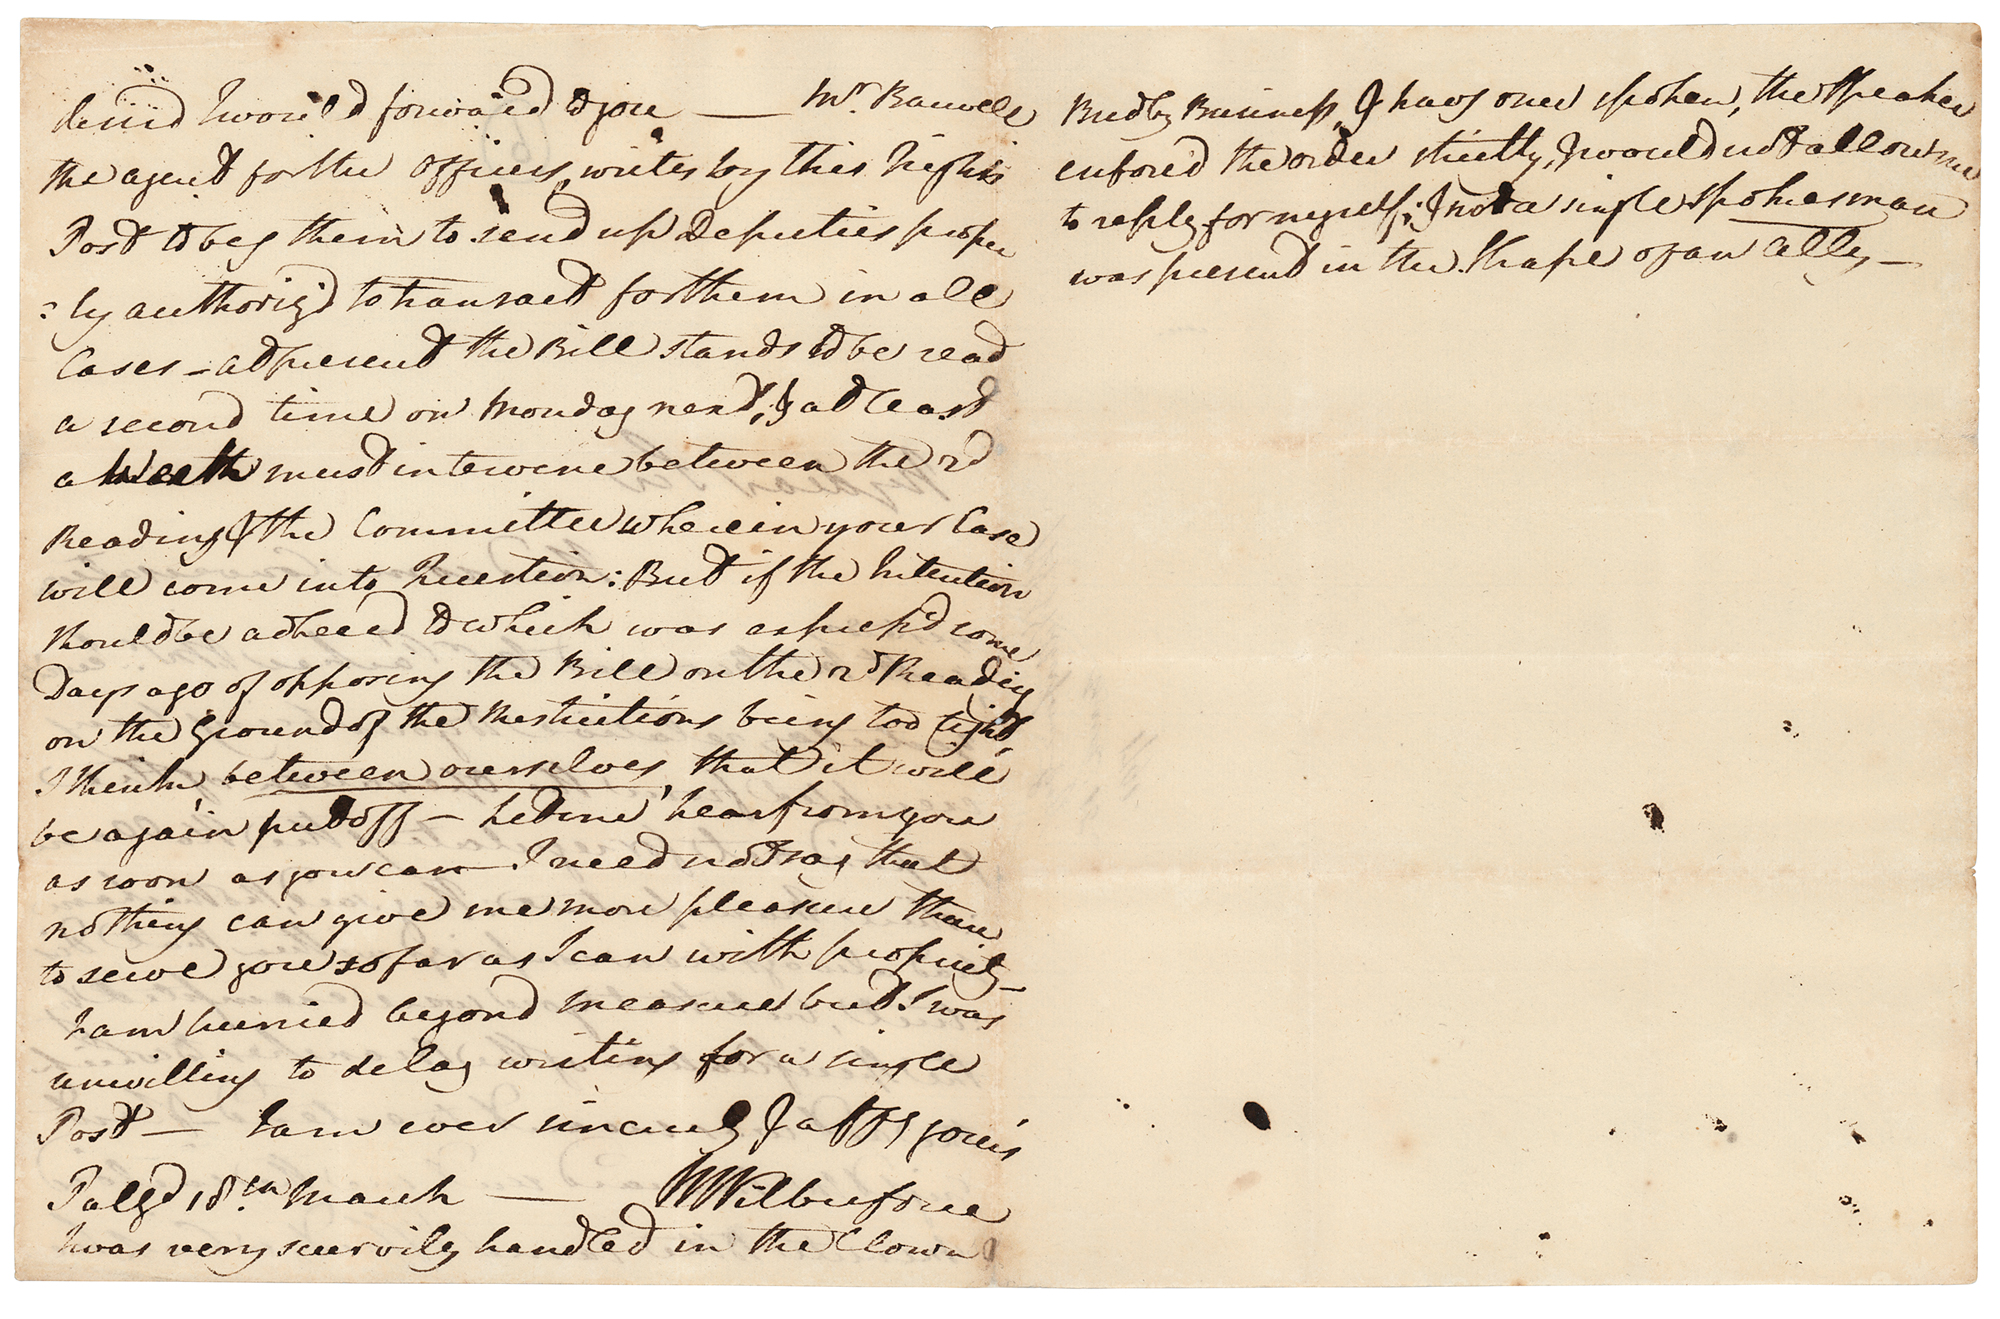 desird I would forward to you — Mr. Barwell
the agent for the Officers, writes by this night's
Post to beg them to send up Deputies proper
:ly authoriz'd to transact for them in all
Cases — at present the Bill stands to be read
a second time on Monday next, & at least
a Week must intervene between the 2d
Reading & the Committee wherein your Case
will come into Question: But if the Intention
should be adhered to which was express'd some
Days ago of opposing the Bill on the 2d Reading
on the Ground of the Restrictions being too tight,
I think, between ourselves, that it will
be again put off — Let me hear from you
as soon as you can — I need not say that
nothing can give me more pleasure than
to serve you so far as I can with propriety —
I am hurried beyond measure but I was
unwilling to delay writing for a single
Post — I am ever sincerely & affy yours
18th March — W Wilberforce
I was very scurvily handled in the Clown
Business, & havg once spoken, the Speaker
enforced the order strictly, & would not allow me
to reply for myself; & not a single spokesman
was present in the Shape of an Ally —